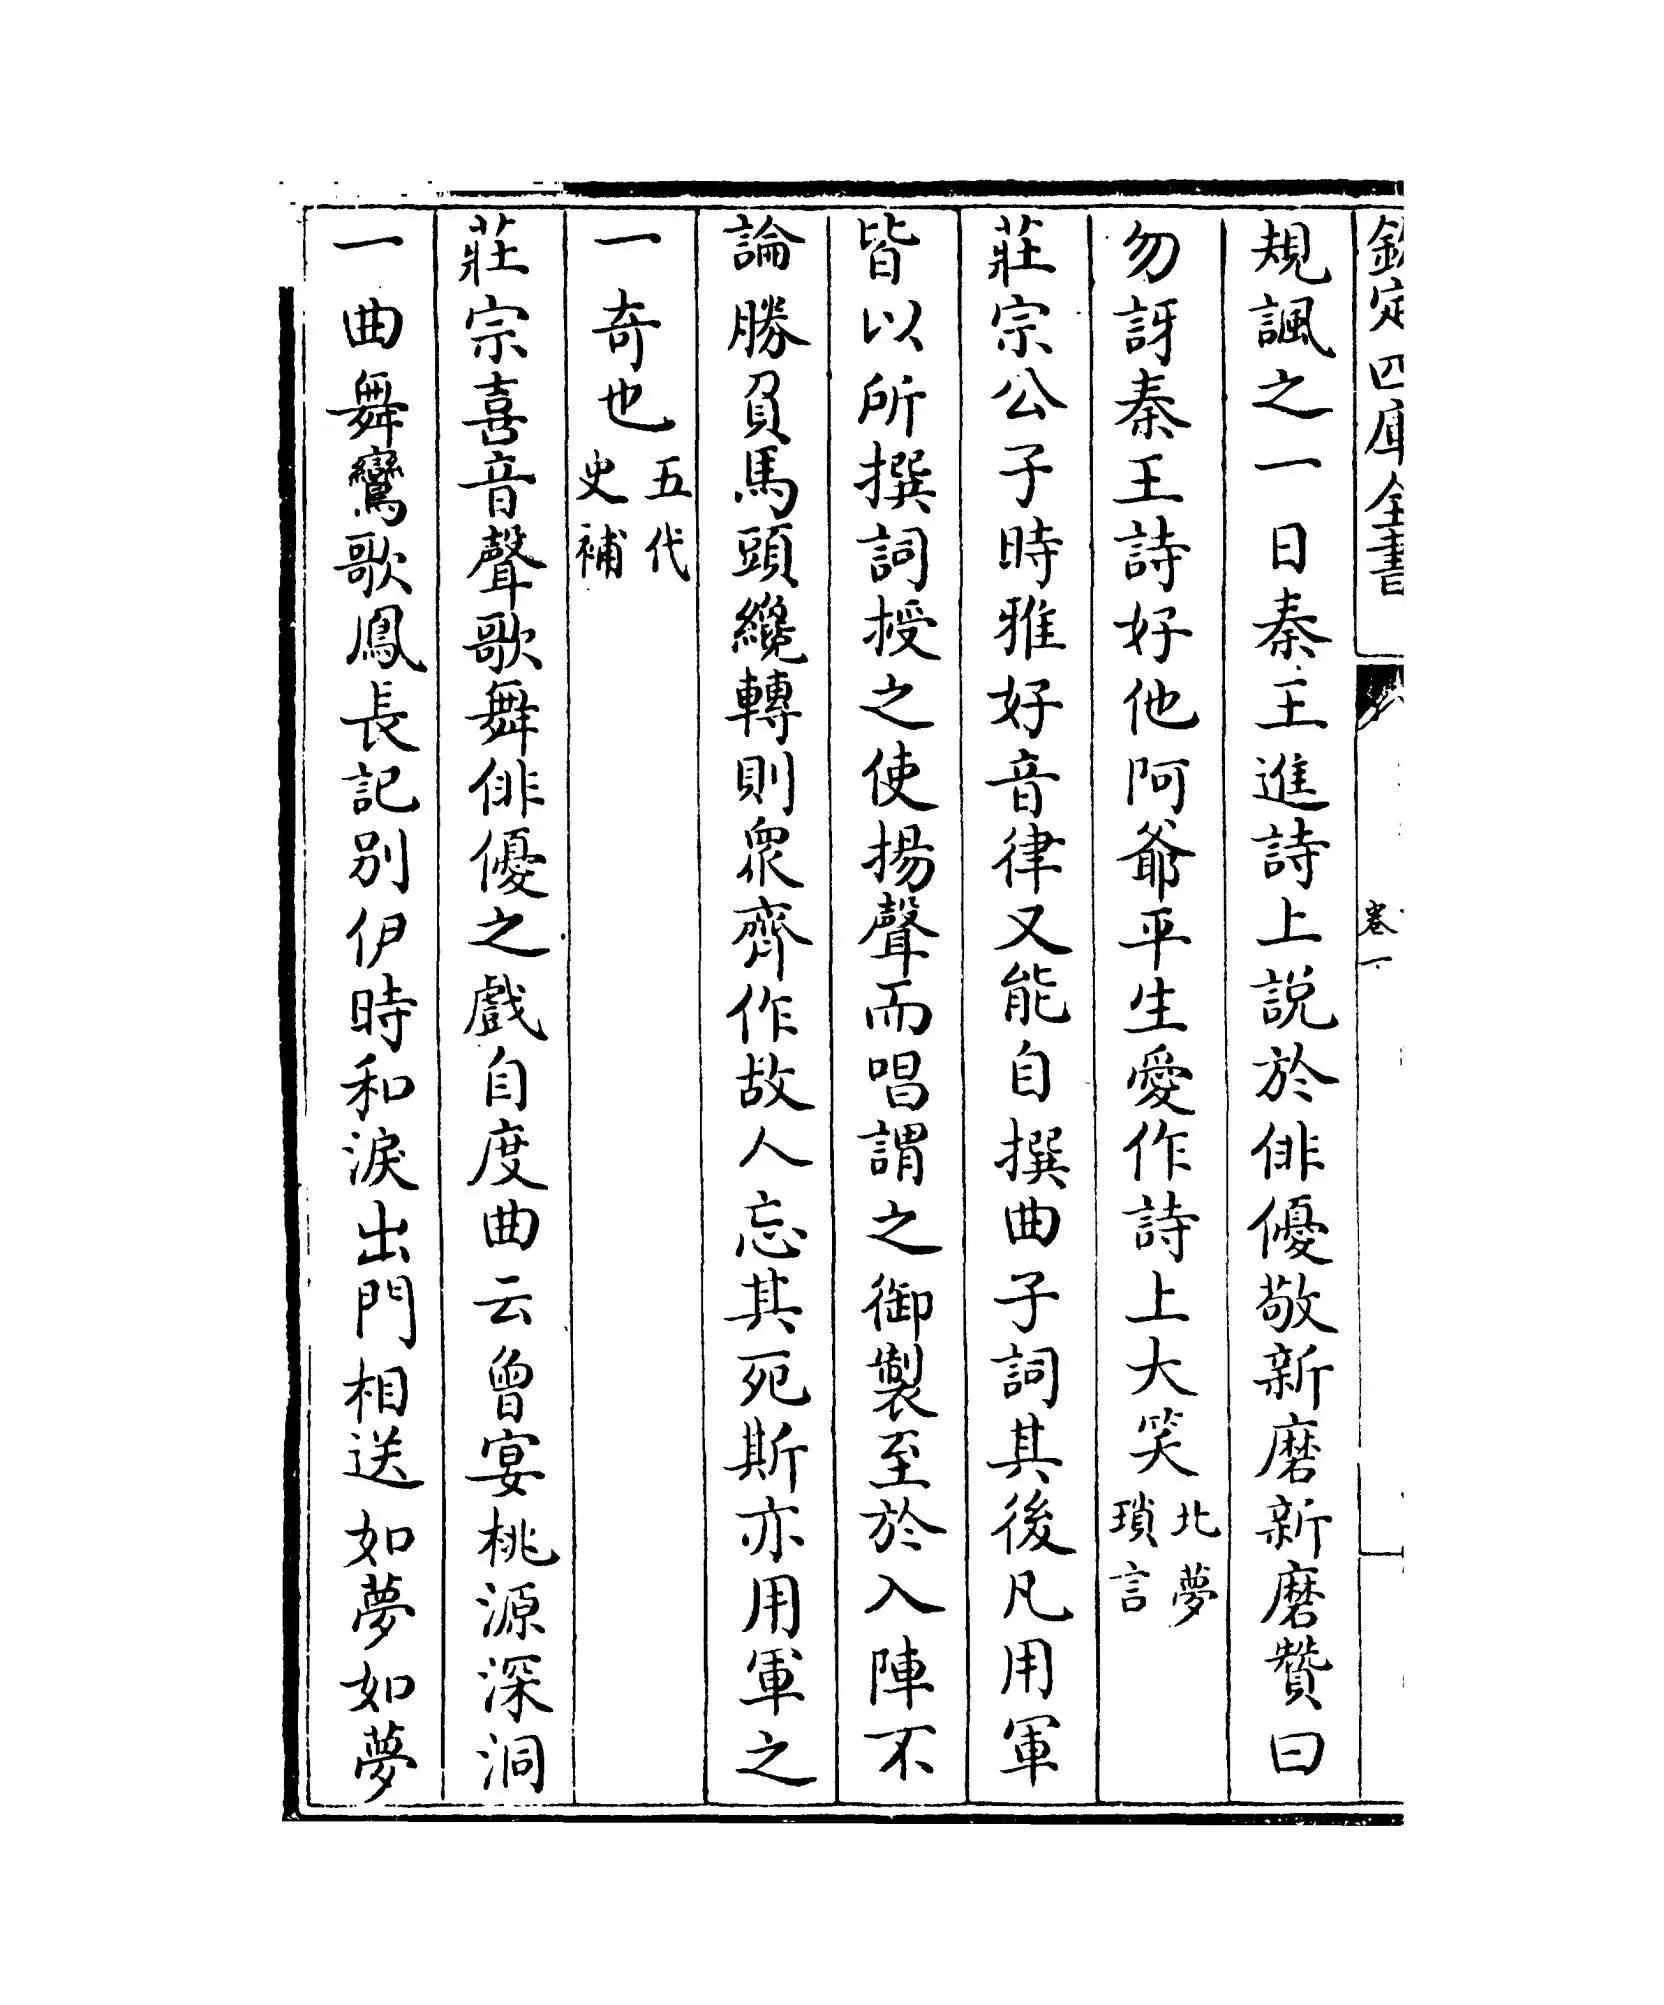 欽定四庫全書
卷一
規諷之一日秦王進詩上說於俳優敬新磨新磨贊曰
勿訝秦王詩好他阿爺平生愛作詩上大笑北夢瑣言
莊宗公子時雅好音律又能自撰曲子詞其後凡用軍
皆以所撰詞授之使揚聲而唱謂之御製至於入陣不
論勝負馬頭纔轉則衆齊作故人忘其死斯亦用軍之
一奇也五代史補
莊宗喜音聲歌舞俳優之戲自度曲云曾宴桃源深洞
一曲舞鸞歌鳳長記别伊時和淚出門相送如夢如夢